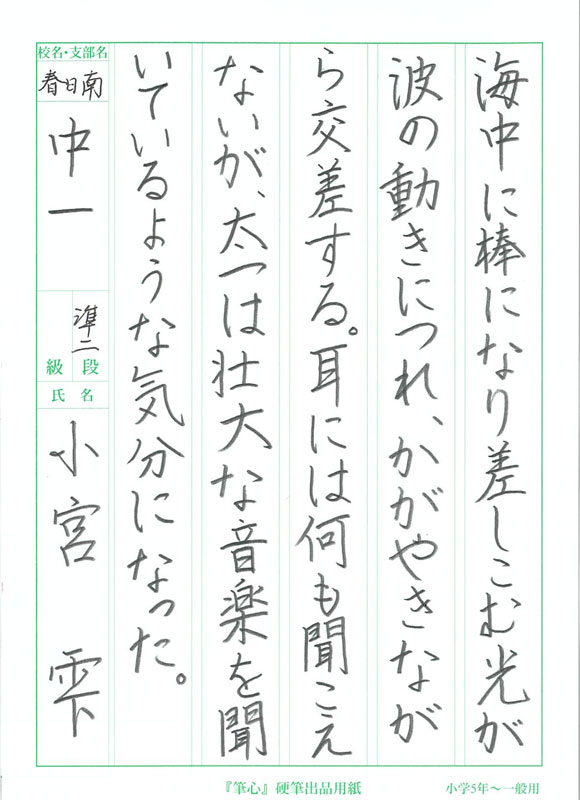 海中に棒になり差しこむ光が
波の動きにつれ、かがやきなが
ら交差する。耳には何も聞こえ
ないが、太一は壮大な音楽を聞
いているような気分になった。
校名・支部名
春日南
中一
準二
段
級
氏名
小宮 雫
『筆心』硬筆出品用紙
小学5年〜一般用